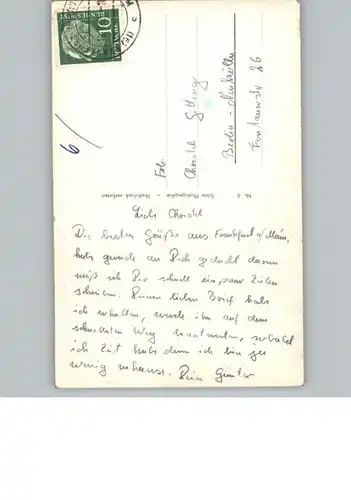 10
DEUTSCHE
BUNDESPOST
6/
Frl.
Christel Götting
Berlin-Neukölln
Fontanestr 26
Nr. 8 Echte Photographie – Nachdruck verboten
Liebe Christel
Die besten Grüße aus Frankfurt a/Main,
habe gerade an Dich gedacht darum
muß ich Dir schnell ein paar Zeilen
schreiben. Deinen lieben Brief habe
ich erhalten, werde ihn auf dem
schnellsten Weg beantworten, sobald
ich Zeit habe denn ich bin ja
wenig zuhause. Dein Günter